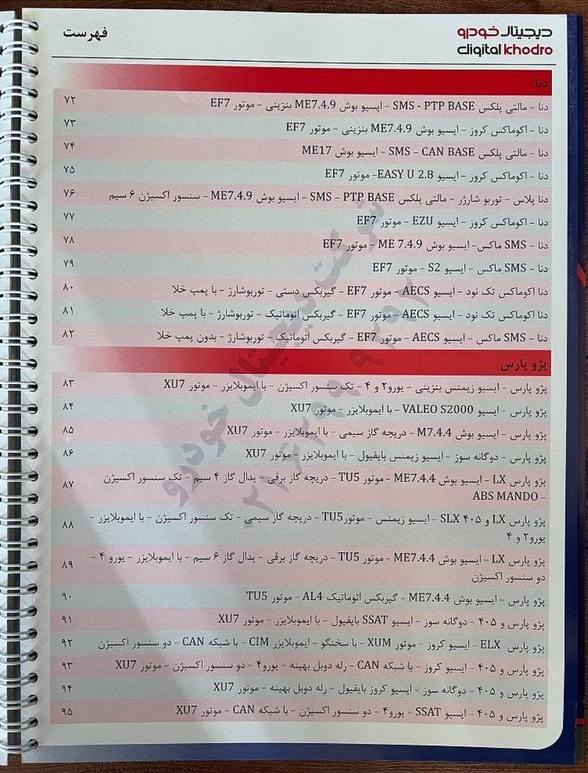 دیجیتال خودرو
digital khodro
فهرست
دنا
دنا - مالتی پلکس SMS - PTP BASE - ایسیو بوش ME7.4.9 بنزینی - موتور EF7 ۷۲
دنا - اکوماکس کروز - ایسیو بوش ME7.4.9 بنزینی - موتور EF7 ۷۳
دنا - مالتی پلکس SMS - CAN BASE - ایسیو بوش ME17 ۷۴
دنا - اکوماکس کروز - ایسیو EASY U 2.8- موتور EF7 ۷۵
دنا پلاس - توربو شارژر - مالتی پلکس SMS - PTP BASE - ایسیو بوش ME7.4.9 - سنسور اکسیژن ۶ سیم ۷۶
دنا - اکوماکس کروز - ایسیو EZU - موتور EF7 ۷۷
دنا - SMS ماکس- ایسیو بوش ME 7.4.9 - موتور EF7 ۷۸
دنا - SMS ماکس - ایسیو S2 - موتور EF7 ۷۹
دنا اکوماکس تک نود - ایسیو AECS - موتور EF7 - گیربکس دستی - توربوشارژ - با پمپ خلا ۸۰
دنا اکوماکس تک نود - ایسیو AECS - موتور EF7 - گیربکس اتوماتیک - توربوشارژ - با پمپ خلا ۸۱
دنا - SMS ماکس - ایسیو AECS - موتور EF7 - گیربکس اتوماتیک - توربوشارژ - بدون پمپ خلا ۸۲
پژو پارس
پژو پارس - ایسیو زیمنس بنزینی - یورو۲ و ۴ - تک سنسور اکسیژن - با ایموبلایزر - موتور XU7 ۸۳
پژو پارس - ایسیو VALEO S2000 - با ایموبلایزر - موتور XU7 ۸۴
پژو پارس - ایسیو بوش M7.4.4 - دریچه گاز سیمی - با ایموبلایزر - موتور XU7 ۸۵
پژو پارس - دوگانه سوز - ایسیو زیمنس بایفیول - با ایموبلایزر - موتور XU7 ۸۶
پژو پارس LX - ایسیو بوش ME7.4.4 - موتور TU5 - دریچه گاز برقی - پدال گاز ۴ سیم - تک سنسور اکسیژن ۸۷
- ABS MANDO
پژو پارس LX و ۴۰۵ SLX - ایسیو زیمنس - موتورTU5 - دریچه گاز سیمی - تک سنسور اکسیژن - با ایموبلایزر - ۸۸
یورو۲ و ۴
پژو پارس LX - ایسیو بوش ME7.4.4 - موتور TU5 - دریچه گاز برقی - پدال گاز ۶ سیم - با ایموبلایزر - یورو ۴ - ۸۹
دو سنسور اکسیژن
پژو پارس - ایسیو بوش ME7.4.4 - گیربکس اتوماتیک AL4 - موتور TU5 ۹۰
پژو پارس و ۴۰۵ - دوگانه سوز - ایسیو SSAT بایفیول - با ایموبلایزر - موتور XU7 ۹۱
پژو پارس ELX - ایسیو کروز - موتور XUM - با سخنگو - ایموبلایزر CIM - با شبکه CAN - دو سنسور اکسیژن ۹۲
پژو پارس و ۴۰۵ - ایسیو کروز - با شبکه CAN - رله دوبل بهینه - یورو۴ - دو سنسور اکسیژن - موتور XU7 ۹۳
پژو پارس و ۴۰۵ - دوگانه سوز - ایسیو کروز بایفیول - رله دوبل بهینه - موتور XU7 ۹۴
پژو پارس و ۴۰۵ - ایسیو SSAT - یورو۴ - دو سنسور اکسیژن - با شبکه CAN - موتور XU7 ۹۵
شرکت دیجیتال خودرو